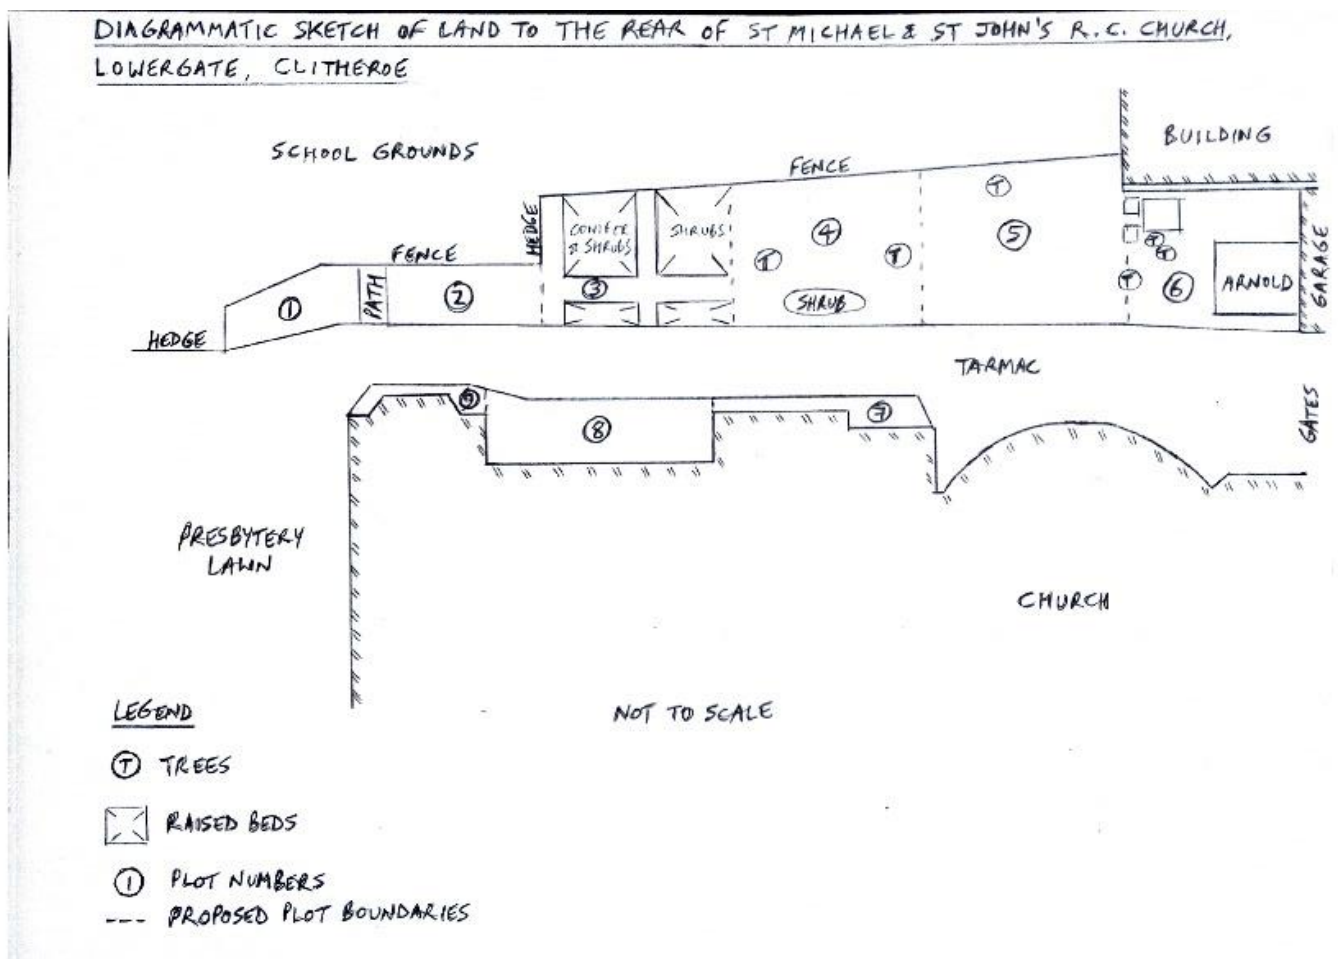 DIAGRAMMATIC SKETCH OF LAND TO THE REAR OF ST MICHAEL & ST JOHN'S R.C. CHURCH,
LOWERGATE, CLITHEROE
SCHOOL GROUNDS
FENCE
BUILDING
HEDGE
CONIFER
& SHRUBS
SHRUBS
T
4
5
T
T
T
T
T
FENCE
PATH
1
2
3
SHRUB
6
ARNOLD
GARAGE
HEDGE
TARMAC
9
8
7
GATES
PRESBYTERY
LAWN
CHURCH
LEGEND
NOT TO SCALE
T TREES
RAISED BEDS
1 PLOT NUMBERS
--- PROPOSED PLOT BOUNDARIES